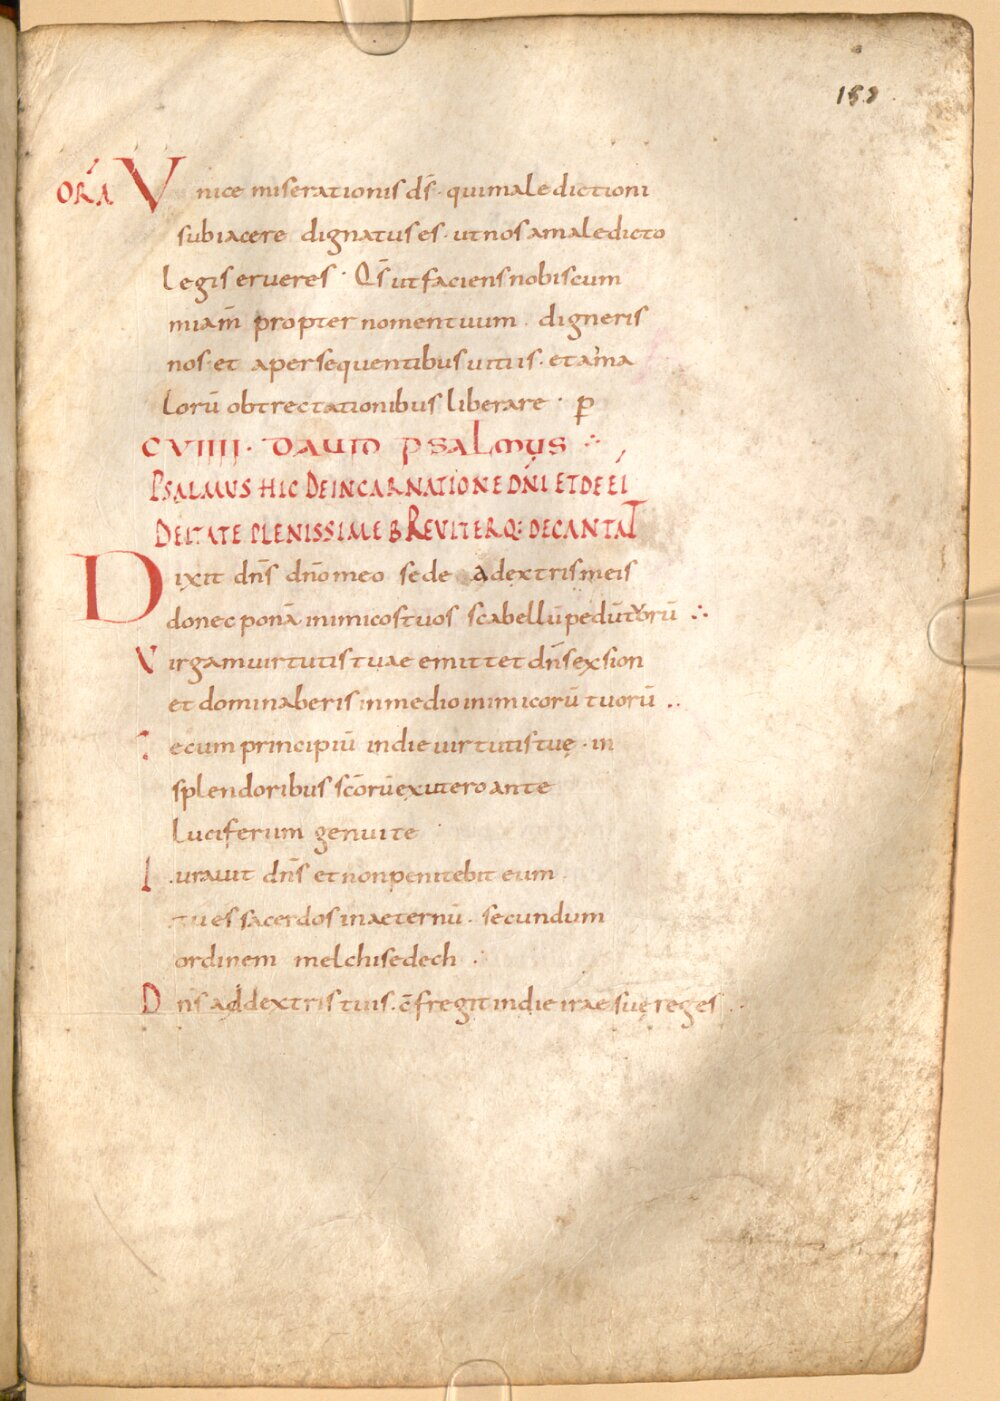 152
ORA Vnice miserationis ds̄· qui maledictioni
subiacere dignatus es· ut nos a maledicto
legis erueres· Qs̄ ut faciens nobiscum
miam̄ propter nomen tuum· digneris
nos· et a persequentibus uitiis· et a ma
lorū obtrectationibus liberare· p
CVIIII· DAVID PSALMUS ∴
PSALMUS HIC DE INCARNATIONE DN̄I ET DE EI
DEITATE PLENISSIME BREVITERQ: DECANTAT
Dixit dn̄s dn̄o meo sede a dextris meis
donec ponā inimicos tuos scabellū pedū tuorū ∴
Virgam uirtutis tuae emittet dn̄s ex sion
et dominaberis in medio inimicorū tuorū ..
Tecum principiū in die uirtutis tuę· in
splendoribus sc̄orū ex utero ante
luciferum genui te
Iurauit dn̄s et non penitebit eum·
tu es sacerdos in aeternū· secundum
ordinem melchisedech ·
Dn̄s a dextris tuis· c̄fregit in die irae suę reges ..